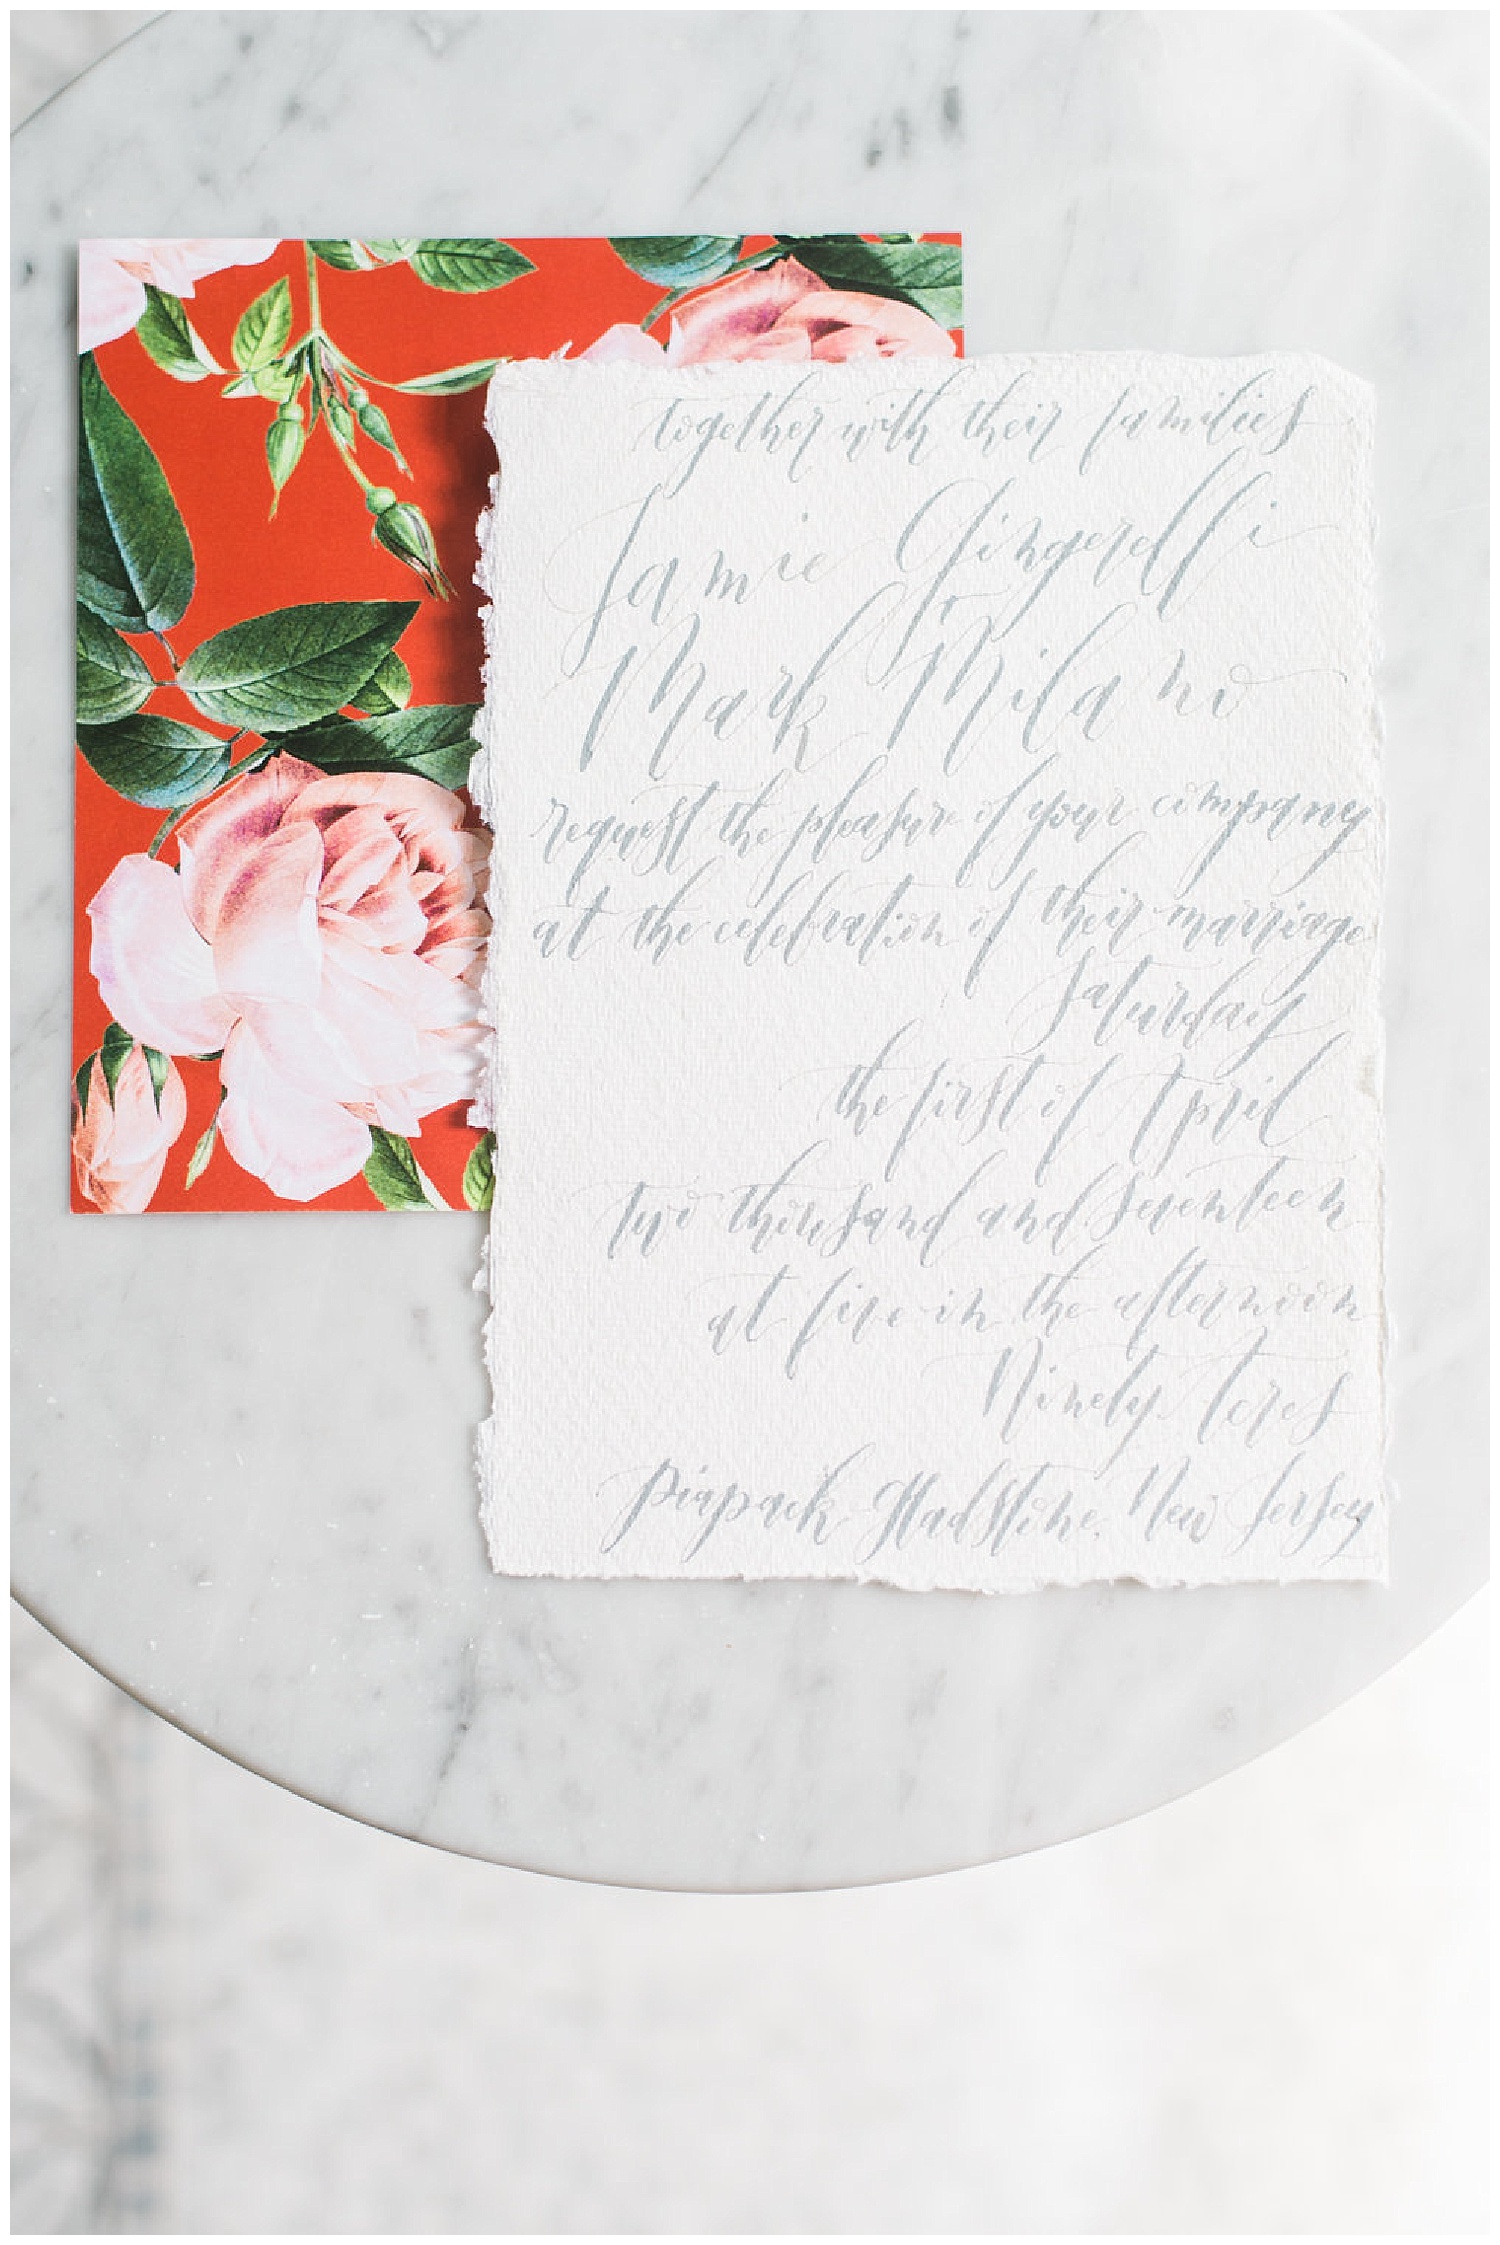 together with their families
Jamie Gingerelli
Mark Milano
request the pleasure of your company
at the celebration of their marriage
Saturday
the first of April
two thousand and seventeen
at five in the afternoon
Ninety Acres
Peapack-Gladstone, New Jersey